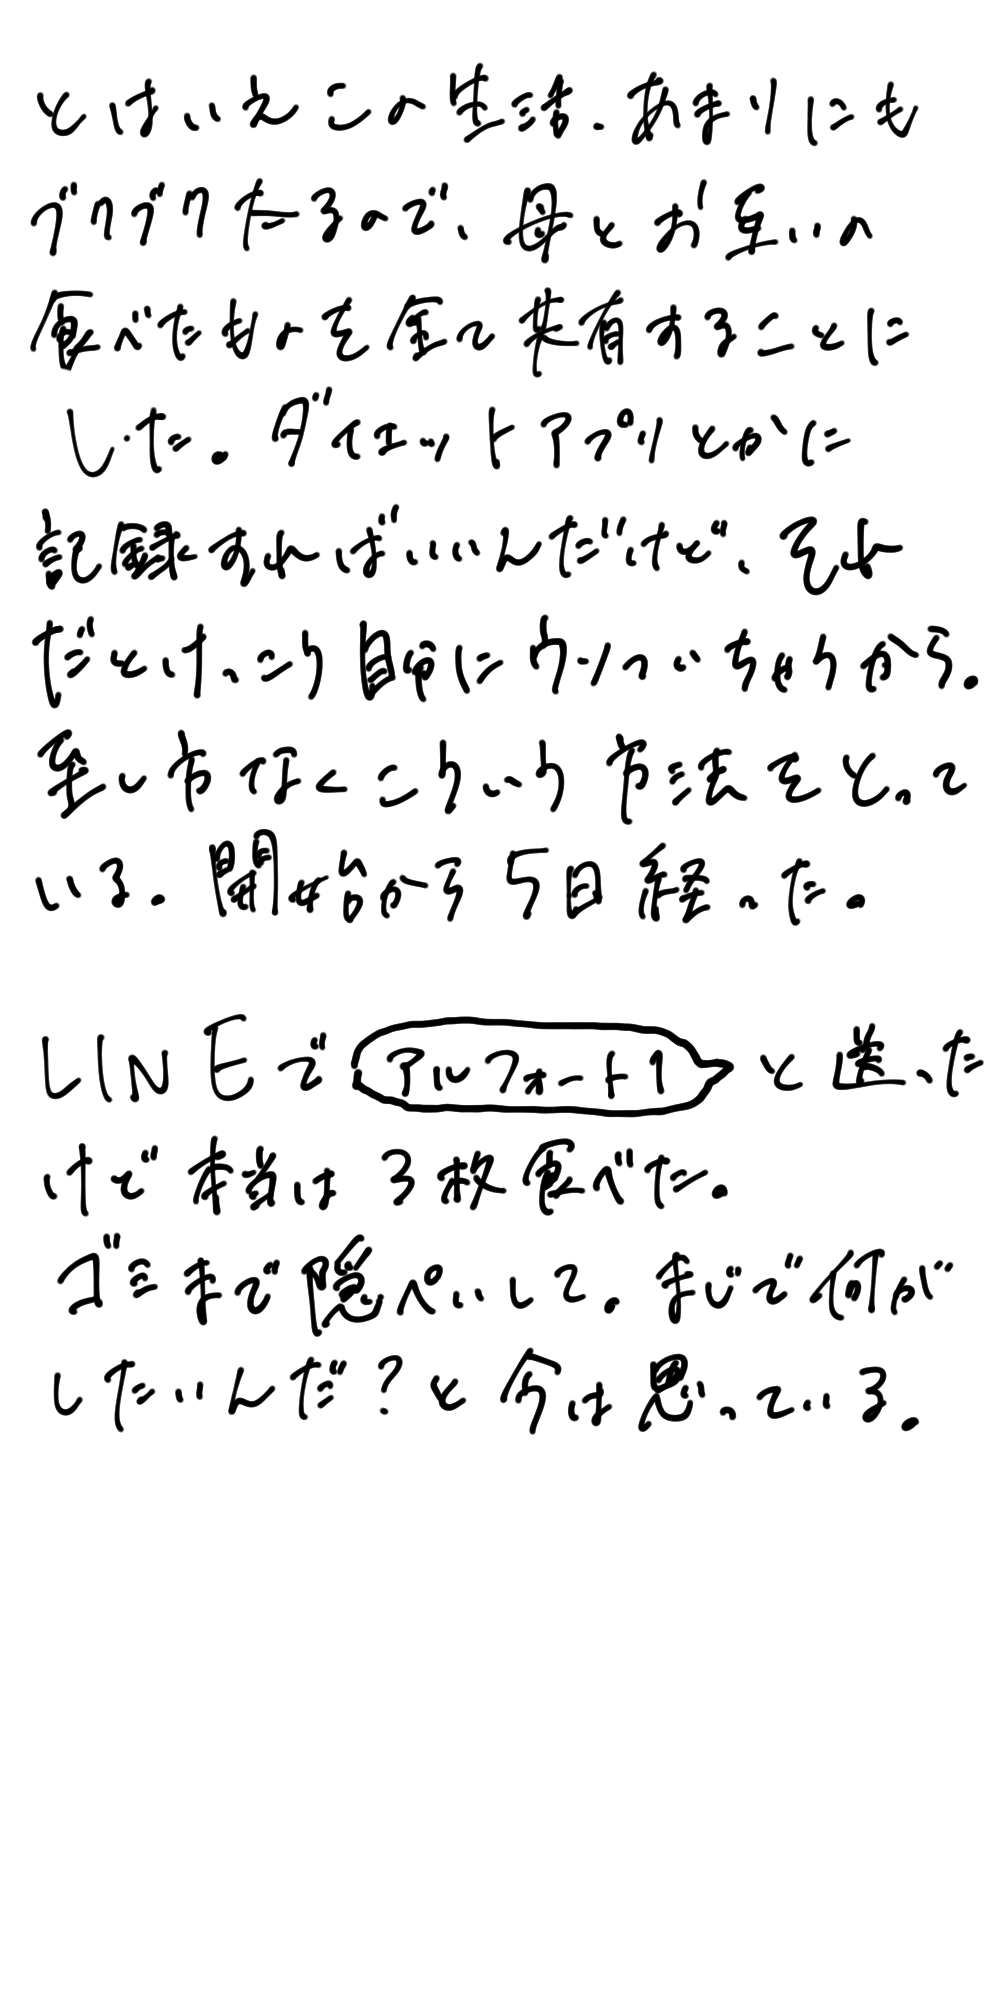 とはいえこの生活、あまりにも
ブクブクたるので、母とお互いの
食べたものを全て共有することに
した。ダイエットアプリとかに
記録すればいいんだけど、それ
だとけっこう自分にウソついちゃうから。
至し方なくこういう方法をとって
いる。開始から5日経った。
LINEで アルフォート1 と送った
けど本当は3枚食べた。
ゴミまで隠ぺいして。まじで何が
したいんだ?と今は思っている。